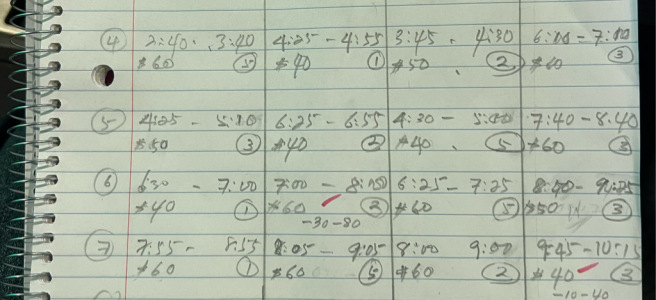 ④ 2:40 - 3:40 4:25 - 4:55 3:45 - 4:30 6:00 - 7:00
$60 ⑤ $40 ① $50 ② $60 ③
⑤ 4:25 - 5:10 6:25 - 6:55 4:30 - 5:00 7:40 - 8:40
$50 ③ $40 ② $40 ⑤ $60 ③
⑥ 6:30 - 7:00 7:00 - 8:00 6:25 - 7:25
$40 ① $60 ② $60 ⑤ $50 ③
-30-80
⑦ 7:55 - 8:55 8:05 - 9:05 8:00 9:00 9:45 - 10:15
$60 ① $60 ⑤ $60 ② $40 ③
-10-40